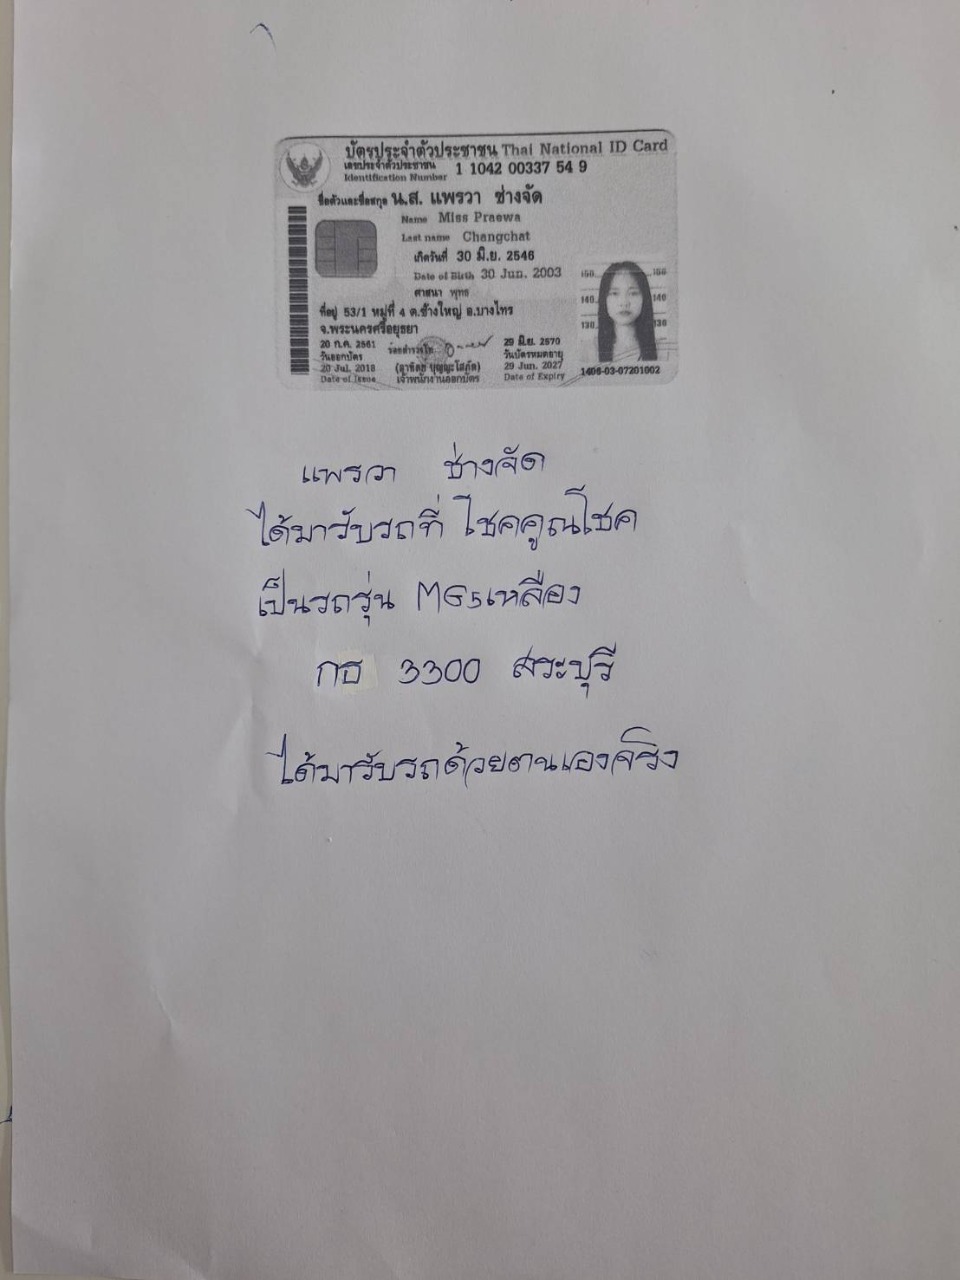 บัตรประจำตัวประชาชน Thai National ID Card
เลขประจำตัวประชาชน
Identification Number
1 1042 00337 54 9
ชื่อตัวและชื่อสกุล น.ส. แพรวา ช่างจัด
Name Miss Praewa
Last name Changchat
เกิดวันที่ 30 มิ.ย. 2546
Date of Birth 30 Jun. 2003
ศาสนา พุทธ
ที่อยู่ 53/1 หมู่ที่ 4 ต.ช้างใหญ่ อ.บางไทร
จ.พระนครศรีอยุธยา
20 ก.ค. 2561
วันออกบัตร
20 Jul. 2018
Date of Issue
เจ้าพนักงานออกบัตร
29 มิ.ย. 2570
วันบัตรหมดอายุ
29 Jun. 2027
Date of Expiry
150 150
140 140
130 130
1406-03-07201002
แพรวา ช่างจัด
ได้มารับรถที่ โชคคูณโชค
เป็นรถรุ่น MG5เหลือง
กธ 3300 สระบุรี
ได้มารับรถด้วยตนเองจริง